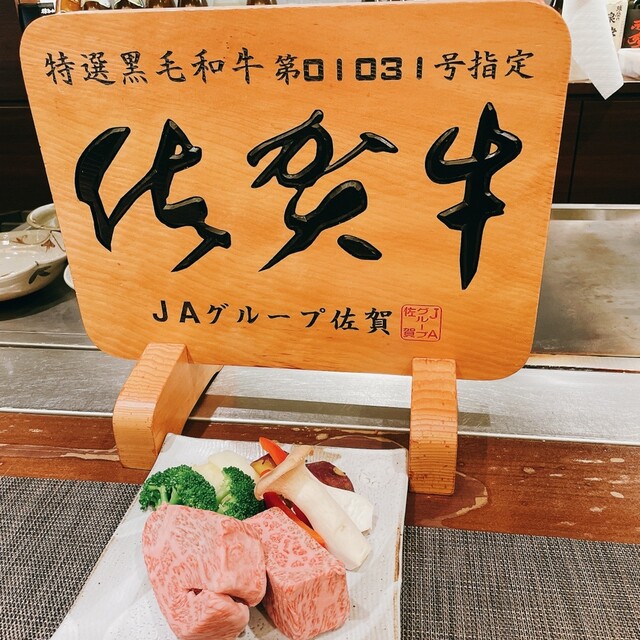 特選黒毛和牛 第01031号指定
佐賀牛
JAグループ佐賀
JA
グループ
佐賀